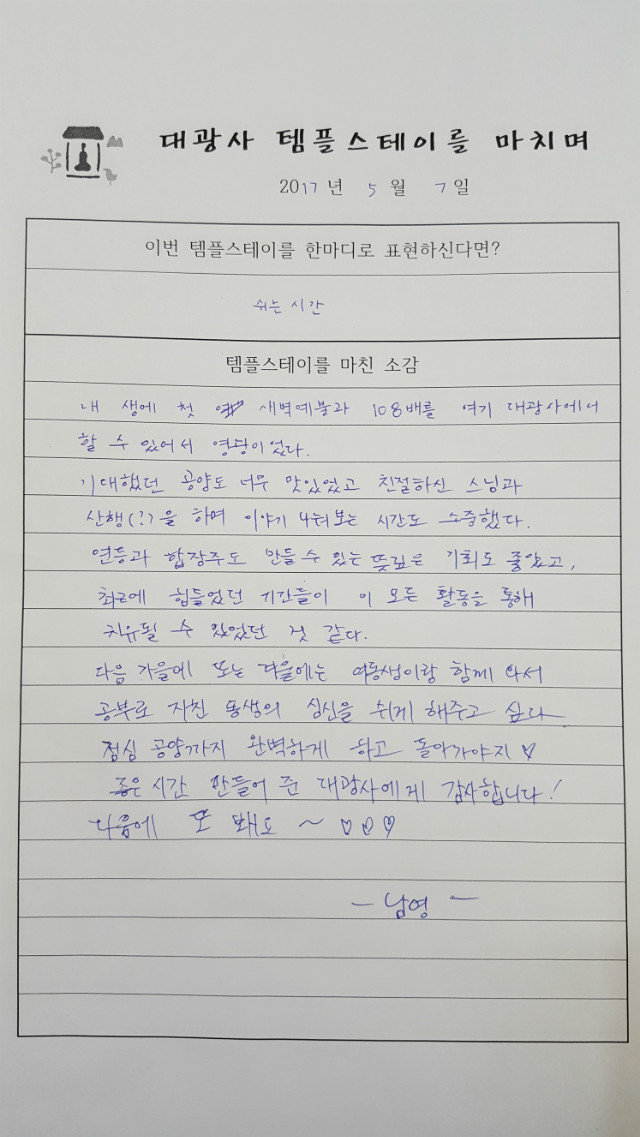 대광사 템플스테이를 마치며
2017년 5월 7일
이번 템플스테이를 한마디로 표현하신다면?
쉬는 시간
템플스테이를 마친 소감
내 생에 첫 새벽예불과 108배를 여기 대광사에서
할 수 있어서 영광이었다.
기대했던 공양도 너무 맛있었고 친절하신 스님과
산행(?)을 하며 이야기 나눠보는 시간도 소중했다.
연등과 합장주도 만들 수 있는 뜻깊은 기회도 좋았고,
최근에 힘들었던 기간들이 이 모든 활동을 통해
치유될 수 있었던 것 같다.
다음 가을에 또는 겨울에는 여동생이랑 함께 와서
공부로 지친 동생의 심신을 쉬게 해주고 싶다
점심 공양까지 완벽하게 하고 돌아가야지 ♡
좋은 시간 만들어 준 대광사에게 감사합니다!
다음에 또 봬요 ~ ♡♡♡
- 남영 -